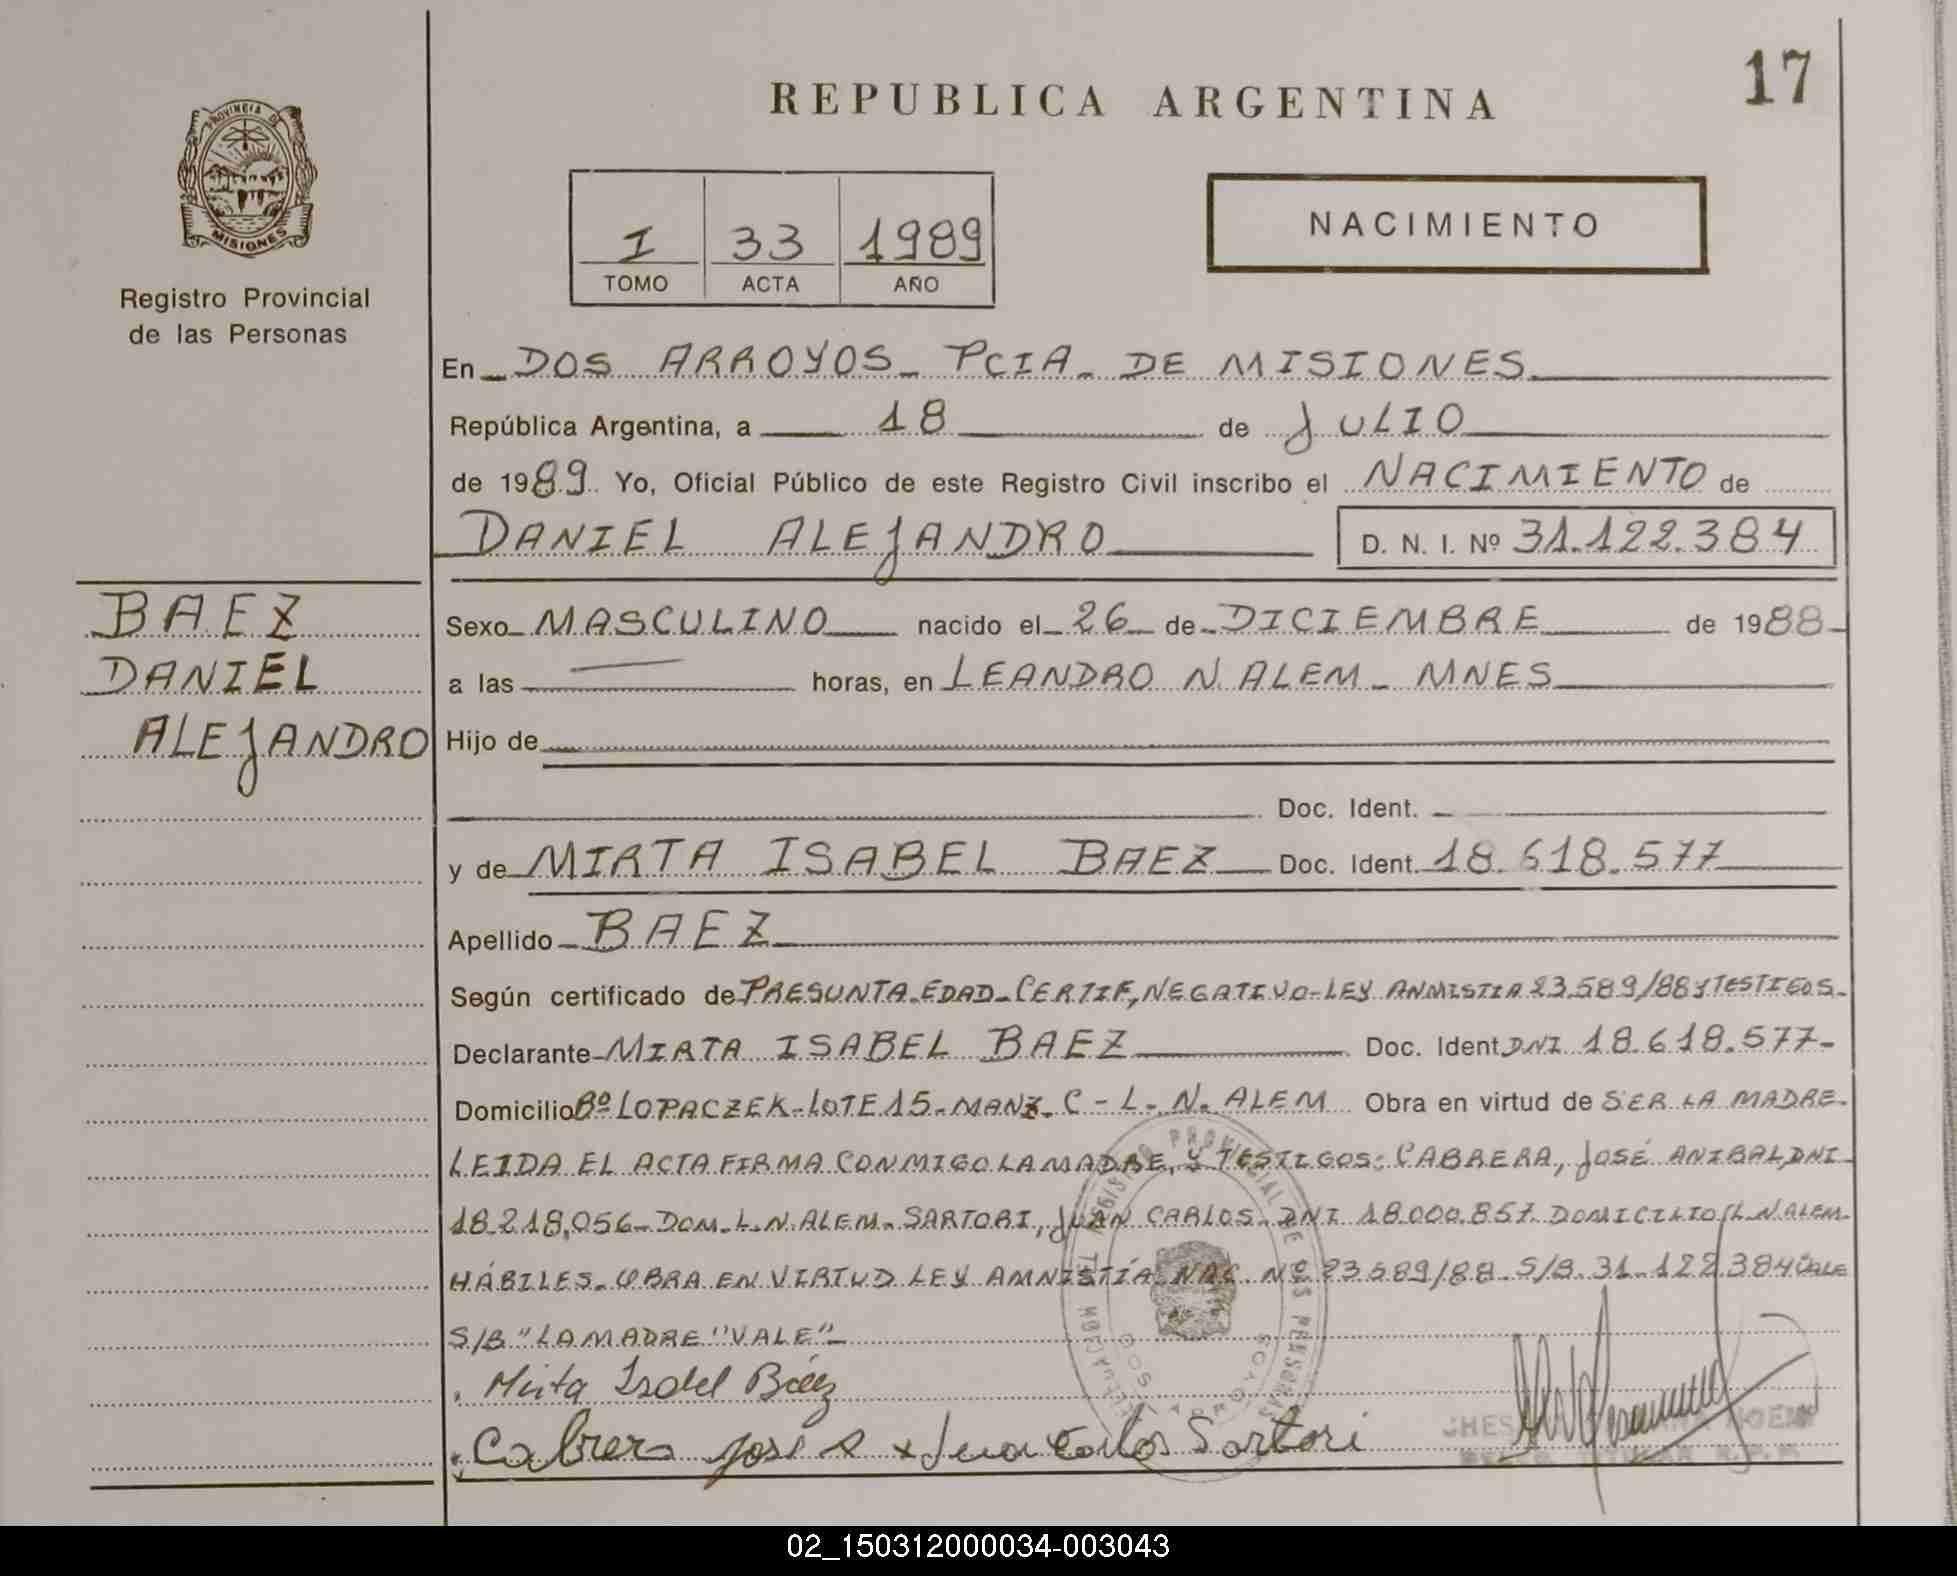 17
REPUBLICA ARGENTINA
PROVINCIA DE
MISIONES
Registro Provincial
de las Personas
I 33 1989
TOMO ACTA AÑO
NACIMIENTO
En DOS ARROYOS - PCIA - DE MISIONES
República Argentina, a 18 de JULIO
de 1989 Yo, Oficial Público de este Registro Civil inscribo el NACIMIENTO de
DANIEL ALEJANDRO D. N. I. Nº 31.122.384
BAEZ
DANIEL
ALEJANDRO
Sexo MASCULINO nacido el 26 de DICIEMBRE de 1988
a las horas, en LEANDRO N. ALEM - MNES
Hijo de
Doc. Ident.
y de MIRTA ISABEL BAEZ Doc. Ident. 18.618.577
Apellido BAEZ
Según certificado de PRESUNTA EDAD - CERTIF, NEGATIVO - LEY ANMISTIA 23.589/88 Y TESTIGOS
Declarante MIRTA ISABEL BAEZ Doc. Ident DNI 18.618.577
Domicilio Bº LOPACZEK - LOTE 15 - MANZ. C - L. N. ALEM Obra en virtud de SER LA MADRE
LEIDA EL ACTA FIRMA CONMIGO LA MADRE, Y TESTIGOS: CABRERA, JOSÉ ANIBAL, DNI
18.218.056 - DOM. L. N. ALEM - SARTORI, JUAN CARLOS - DNI 18.000.857 DOMICILIO L. N. ALEM
HÁBILES - OBRA EN VIRTUD LEY AMNISTÍA NAC. Nº 23589/88 - S/B. 31.122.384 VALE
S/B "LA MADRE" VALE"
Mirta Isabel Báez
Cabrera Jose A x Juan Carlos Sartori
REGISTRO PROVINCIAL DE LAS PERSONAS
DOS ARROYOS
02_150312000034-003043